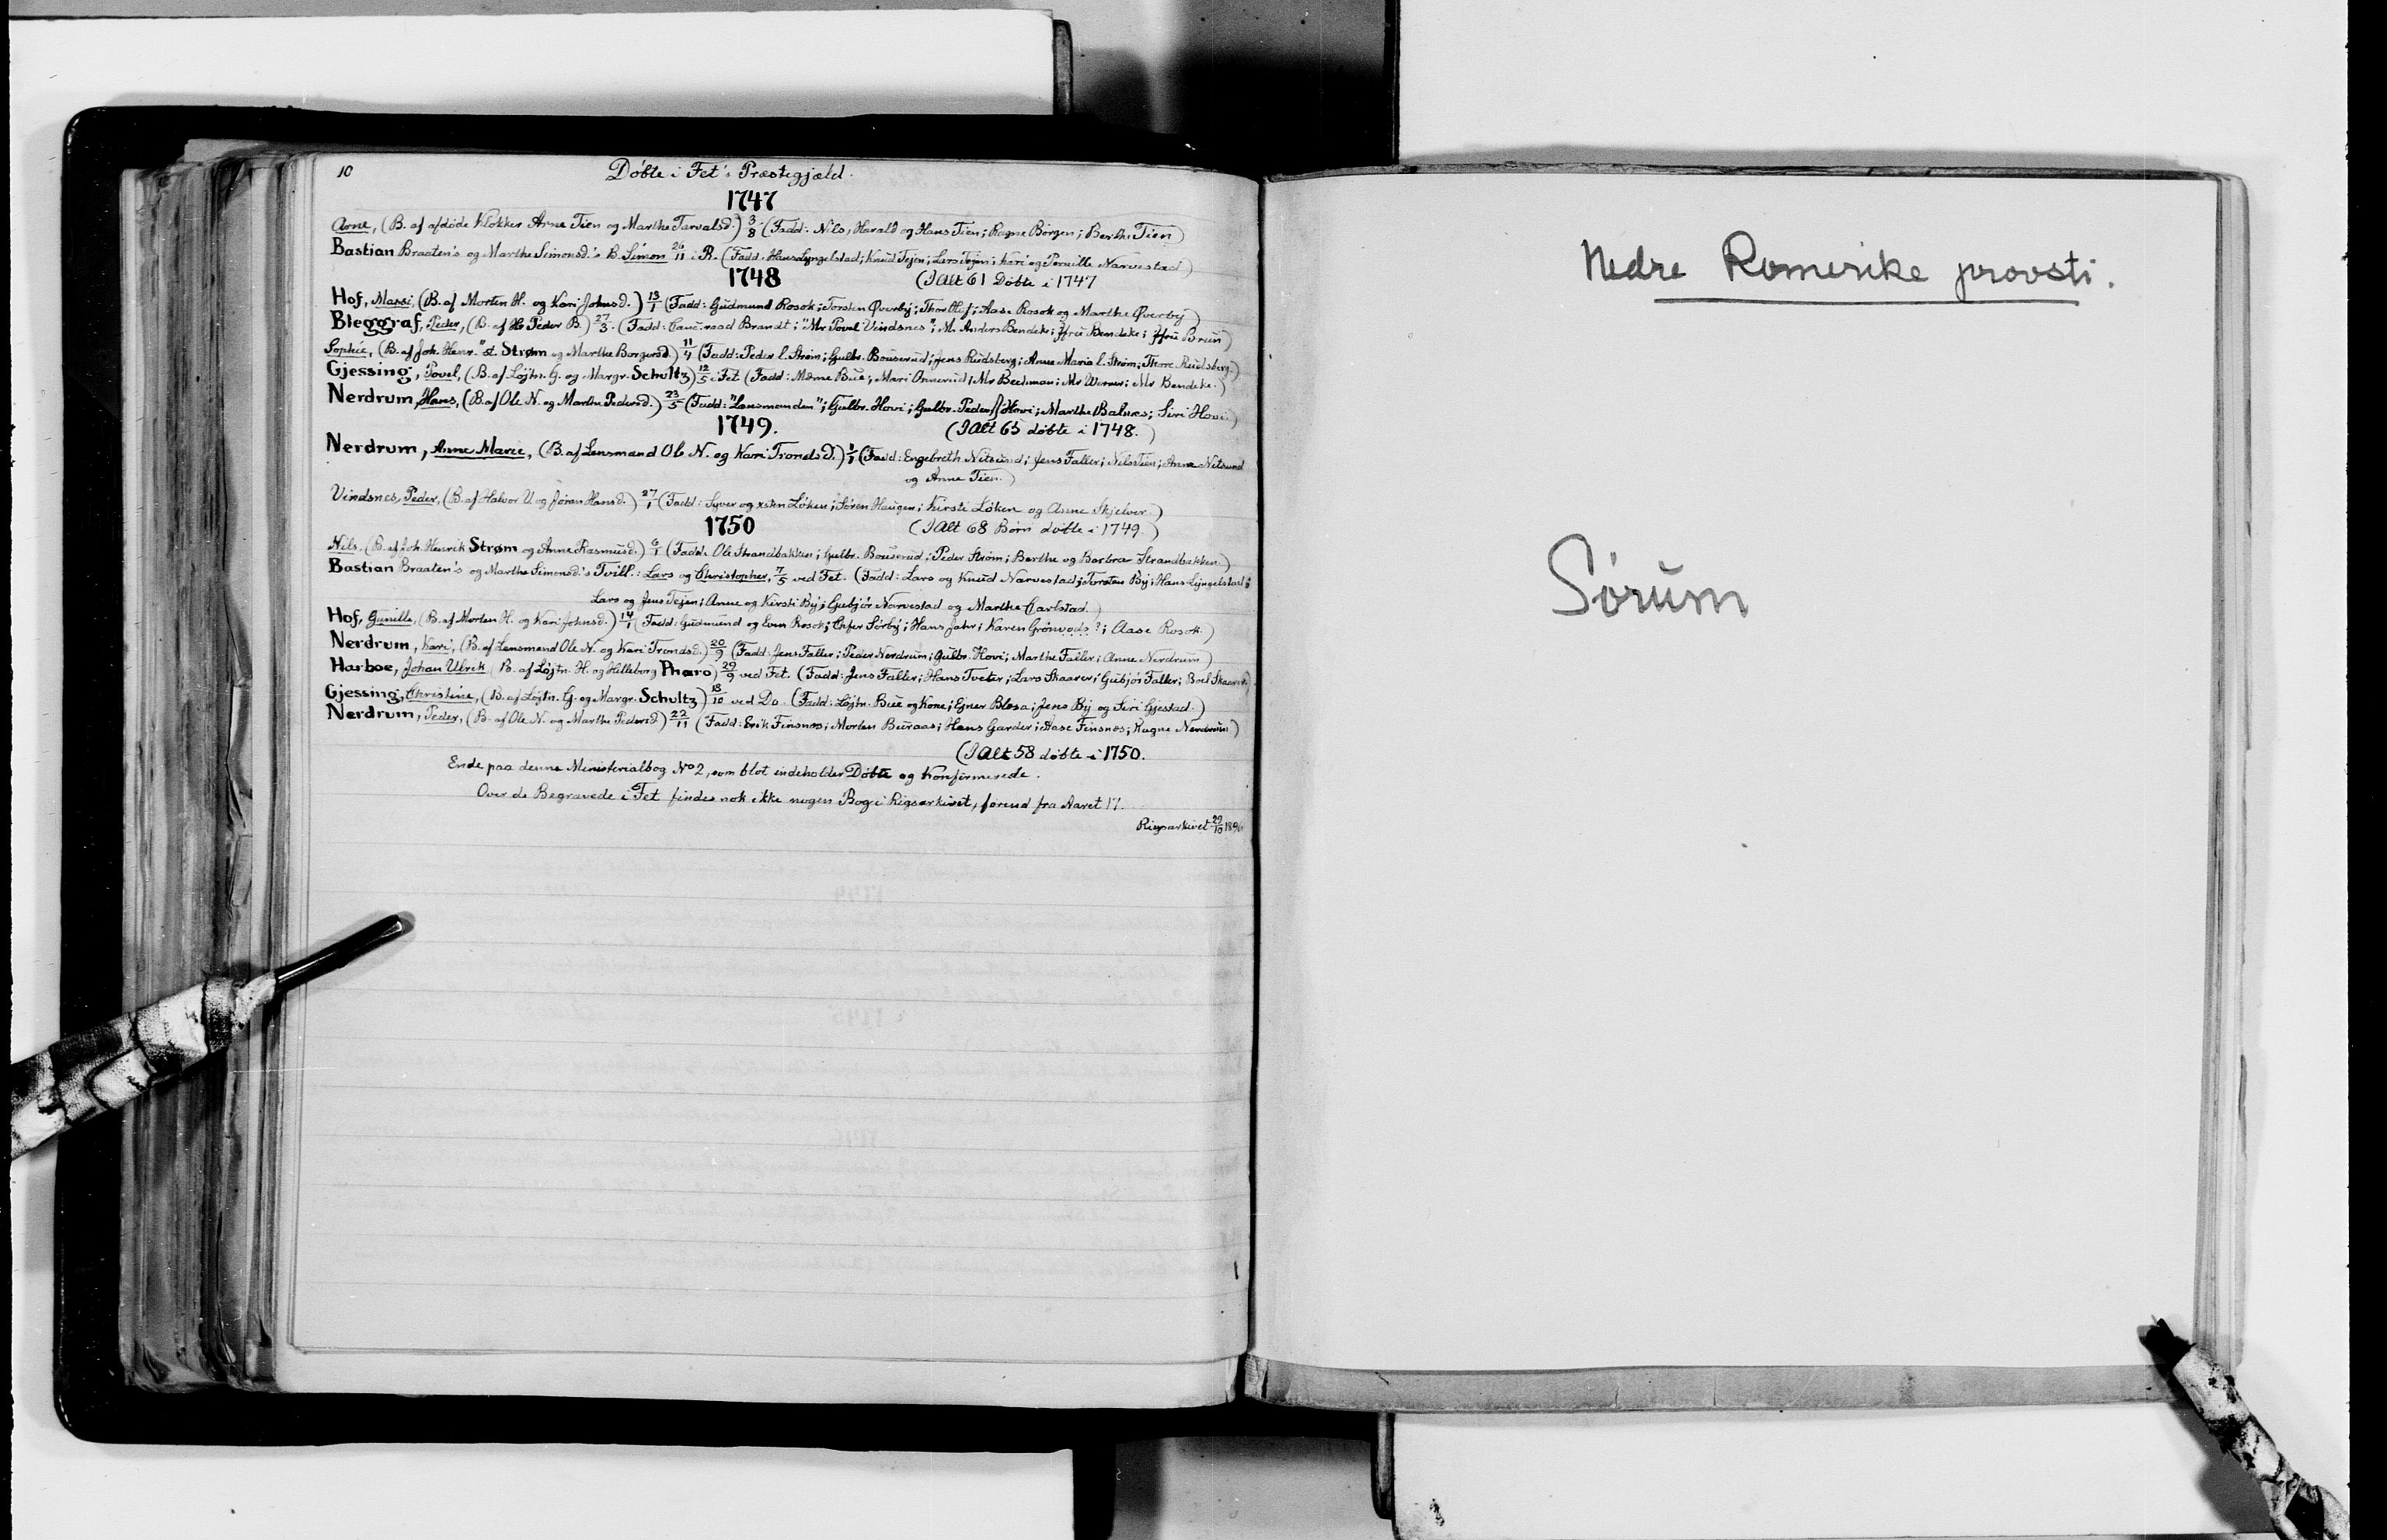 10
Döbte i Fet's Præstegjæld.
1747
Arne, (B. af afdöde Klokker Arne Tien og Marthe Tarvalsd.) 3/8. (Fadd: Nils, Harald og Hans Tien; Ragne Börgen; Berthe Tien)
Bastian Braaten's og Marthe Simonsd.'s B. Simon 26/11 i R. (Fadd: Hans Lyngelstad; Knud Tejen; Lars Tejen; Kari og Pernille Narvestad)
1748 (I Alt 61 Döbte i 1747
Hof, Massi, (B. af Morten H. og Kari Johnsd.) 13/1 (Fadd: Gudmund Rosok; Torsten Øverby; Thor Hof; Aase Rosok og Marthe Øverby)
Bleggraf, Peder, (B. af Hr Peder B.) 27/3. (Fadd: Brandt; "Mr Povel Vindsnes"; M. Anders Bendeke; Jfru Bendeke; Jfru Brun)
Sophie, (B. af Joh. Henr. Strøm og Marthe Borgersd.) 11/4 (Fadd: Peder l. Ström; Gulbr. Bouserud; Jens Rudsberg; Anne Maria l. Ström; Thore Rudsberg.)
Gjessing, Povel, (B. af Löjtn. G. og Margr. Schultz) 12/5 i Fet (Fadd: Mdme Bue; Mari Onnerud; Mr Beckman; Mr Werner; Mr Bendeke.)
Nerdrum, Hans, (B. af Ole N. og Marthe Pedersd.) 23/5 (Fadd: "Lensmanden"; Gulbr. Hovi; Gulbr. Peders Hovi; Marthe Balnes; Siri Hovi.)
1749. (I Alt 65 döbte i 1748.)
Nerdrum, Anne Marie, (B. af Lensmand Ole N. og Kari Trondsd.) 1/1 (Fadd: Engebreth Nitsund; Jens Faller; Nils Tien; Anne Nitsund
og Anne Tien.)
Vindsnes, Peder, (B. af Halvor V. og Jöran Hansd.) 27/1 (Fadd: Syver og xsten Löken; Sören Haugen; Kirsti Löken og Anne Skjelver.)
1750 (I Alt 68 Börn döbte i 1749.)
Nils, (B. af Joh. Henrik Strøm og Anne Rasmusd.) 6/1 (Fadd. Ole Strandbakken; Gulbr. Bouserud; Peder Ström; Berthe og Barbra Strandbakken.)
Bastian Braaten's og Marthe Simonsd.'s Tvill.: Lars og Christopher, 7/5 ved Fet. (Fadd: Lars og Knud Narvestad; Torsten By; Hans Lyngelstad;
Lars og Jens Tejen; Anne og Kirsti By; Gubjör Narvestad og Marthe Carlstad.)
Hof, Gunille, (B. af Morten H. og Kari Johnsd.) 14/1 (Fadd: Gudmund og Even Rosok; Sörby; Hans Jahr; Karen Grönvods?; Aase Rosok.)
Nerdrum, Kari, (B. af Lensmand Ole N. og Kari Trondsd.) 20/9 (Fadd: Jens Faller; Peder Nerdrum; Gulbr. Hovi; Marthe Faller; Anne Nerdrum)
Harboe, Johan Ulrik (B. af Löjtn. H. og Hilleborg Pharo) 29/9 ved Fet. (Fadd: Jens Faller; Hans Tveter; Lars Skaarer; Gubjör Faller; Boel Skaarer.)
Gjessing, Christine, (B. af Löjtn. G. og Margr. Schultz) 18/10 ved Do. (Fadd: Löjtn. Bue og Kone; Egner Blesa; Jens By og Siri Gjestad.)
Nerdrum, Peder, (B. af Ole N. og Marthe Pedersd) 22/11 (Fadd: Erik Finsnes; Morten Buraas; Hans Garder; Aase Finsnes; Ragne Nerdrum)
(I Alt 58 döbte i 1750.
Ende paa denne Ministerialbog No 2, som blot indeholder Döbte og Konfirmerede.
Over de Begravede i Fet findes nok ikke nogen Bog i Rigsarkivet, förend fra Aaret 17.
Rigsarkivet 29/10
Nedre Romerike provsti.
Sörum